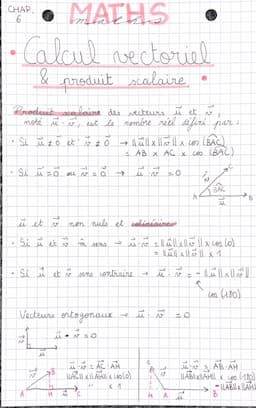 CHAP. 6
MATHS
• Calcul vectoriel
& produit scalaire •
Produit scalaire des vecteurs u⃗ et v⃗,
noté u⃗ · v⃗, est le nombre réel défini par :
• Si u⃗ ≠ 0 et v⃗ ≠ 0 → ||u⃗|| x ||v⃗|| x cos (BAC)
= AB x AC x cos (BAC)
• Si u⃗ = 0 ou v⃗ = 0 → u⃗ · v⃗ = 0
C
v⃗
BAC
A
u⃗
B
u⃗ et v⃗ non nuls et colinéaires
• Si u⃗ et v⃗ m̂ sens → u⃗ · v⃗ = ||u⃗|| x ||v⃗|| x cos (0)
= ||u⃗|| x ||v⃗|| x 1
• Si u⃗ et v⃗ sens contraire → u⃗ · v⃗ = - ||u⃗|| x ||v⃗||
cos (180)
Vecteurs orthogonaux → u⃗ · v⃗ = 0
v⃗
u⃗
u⃗ · v⃗ = 0
B
A H C
u⃗ · v⃗ = AC · AH
||AC|| x ||AH|| x cos (0)
x 1
C
H A B
u⃗ · v⃗ = AB · AH
||AB|| x ||AH|| x cos (180)
- ||AB|| x ||AH||